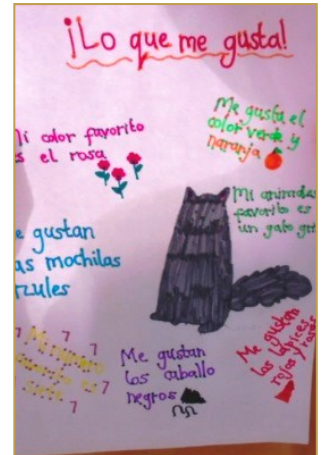 ¡Lo que me gusta!
Me gusta el
color verde y
naranja
i color favorito
s el rosa
Mi animales
favorito es
un gato gri
e gustan
as mochilas
zules
7 7 7 7
Mi número
favorito es
siete
7 7
Me gustan
los caballo
negros
Me gustan
los lápices
rojos y rosas